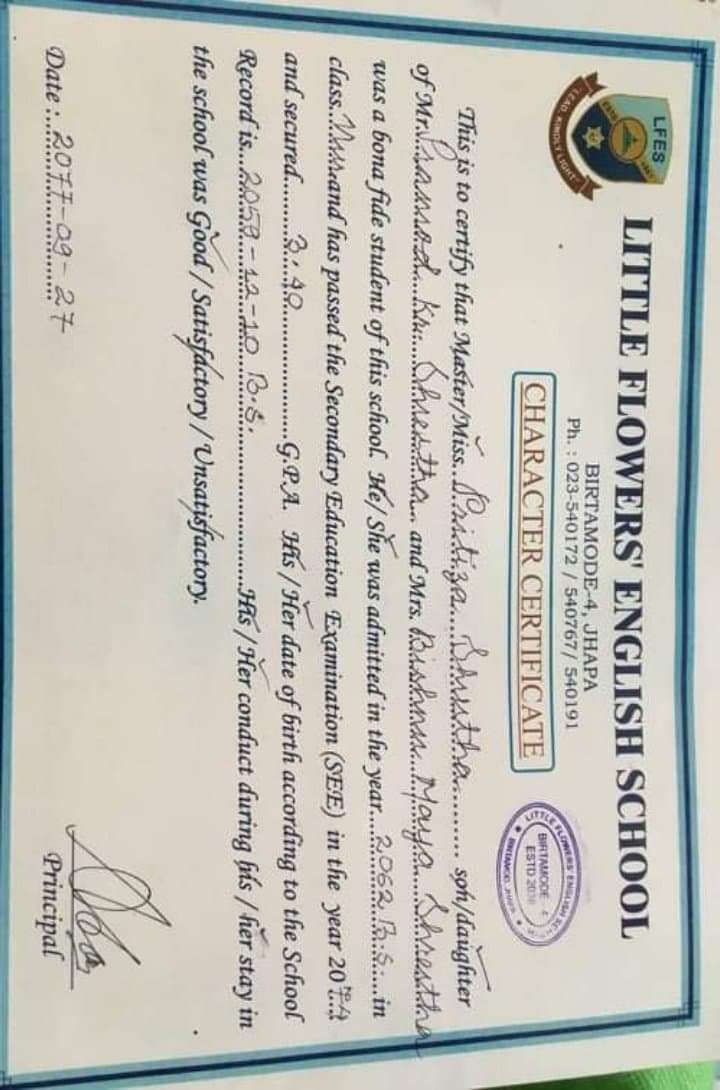 LFES
"LEAD KINDLY LIGHT"
LITTLE FLOWERS' ENGLISH SCHOOL
BIRTAMODE-4, JHAPA
Ph. : 023-540172 / 540767/ 540191
CHARACTER CERTIFICATE
LITTLE FLOWERS' ENGLISH
BIRTAMODE - 4
ESTD 2038
This is to certify that Master/Miss. Pritiza Shrestha......... son/daughter
of Mr. Pramod Kr. Shrestha... and Mrs. Bishnu Maya Shrestha
was a bona fide student of this school. He/ She was admitted in the year....2062 B.S.....in
class...Nur. and has passed the Secondary Education Examination (SEE) in the year 20
and secured..........3.40..................G.P.A. His / Her date of birth according to the School
Record is...2059-12-10 B.S.........................His / Her conduct during his / her stay in
the school was Good / Satisfactory / Unsatisfactory.
Date : 2077-09-27
Principal